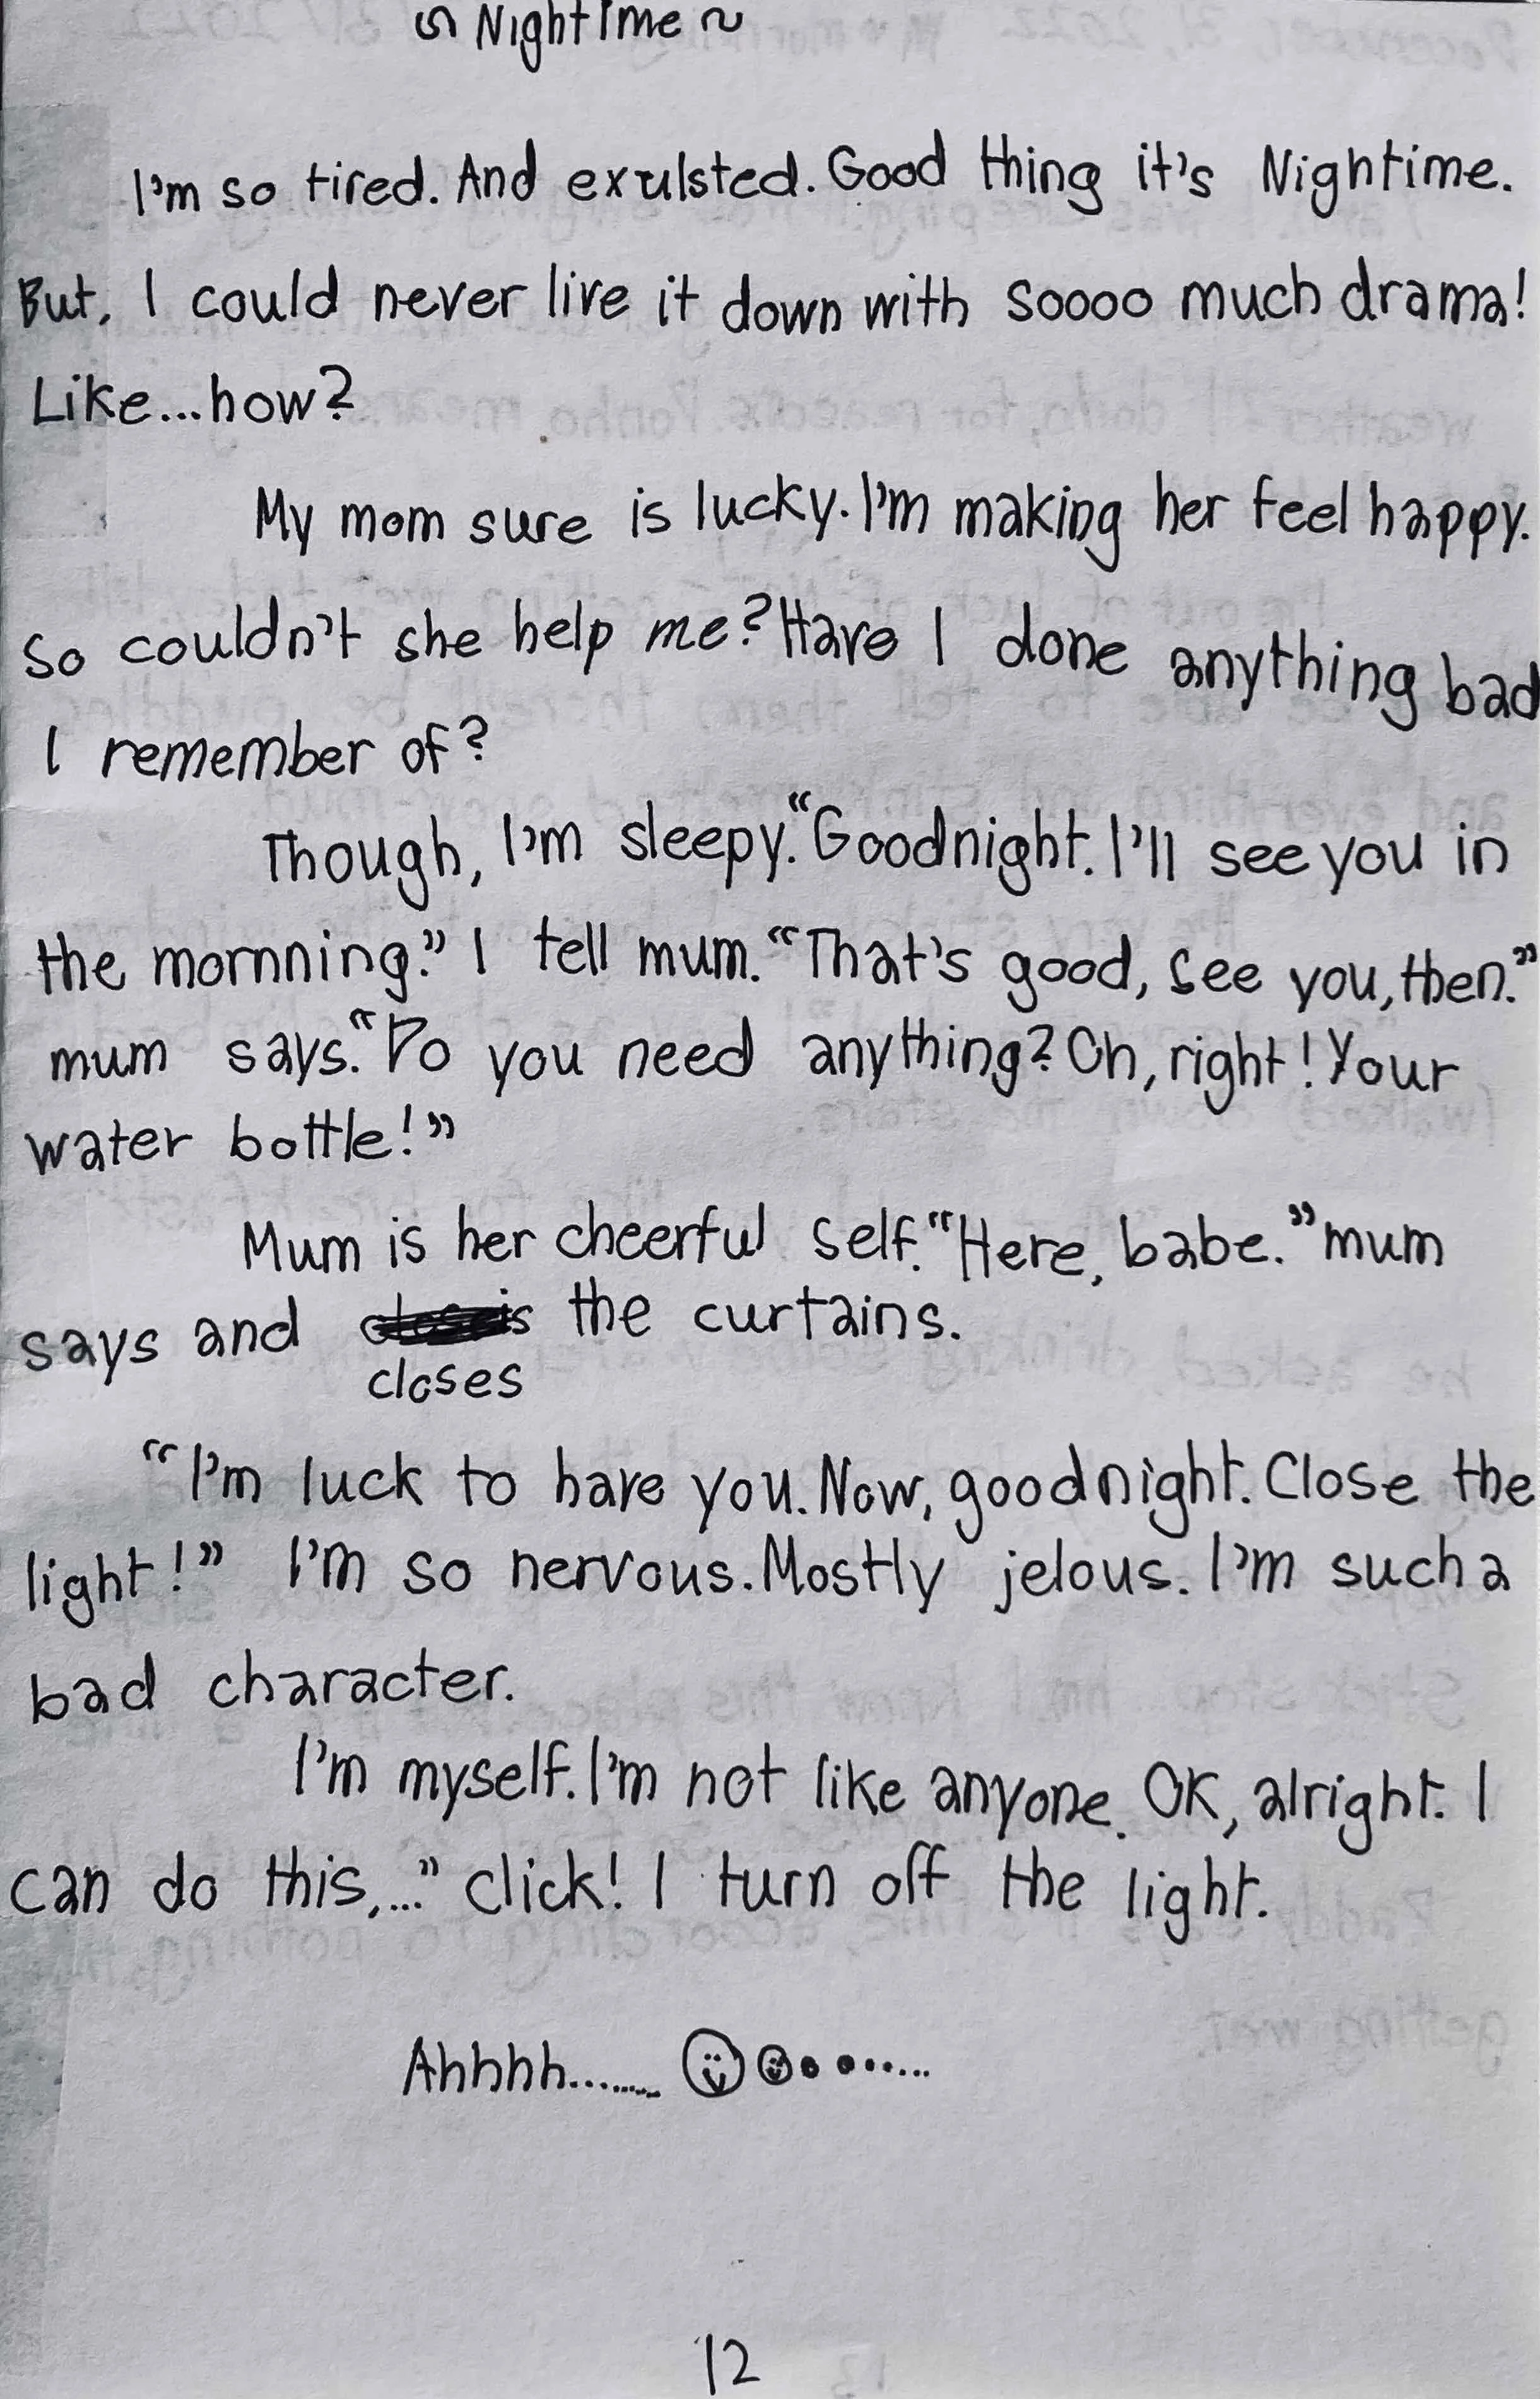 ~ Nightime ~
I'm so tired. And exulsted. Good thing it's Nightime.
But, I could never live it down with soooo much drama!
Like...how?
My mom sure is lucky. I'm making her feel happy.
So couldn't she help me? Have I done anything bad
I remember of?
Though, I'm sleepy. "Goodnight. I'll see you in
the mornning." I tell mum. "That's good, see you, then."
mum says. "Do you need anything? Oh, right! Your
water bottle!"
Mum is her cheerful self. "Here, babe." mum
says and closes the curtains.
"I'm luck to have you. Now, goodnight. Close the
light!" I'm so nervous. Mostly jelous. I'm such a
bad character.
I'm myself. I'm not like anyone. OK, alright. I
can do this,..." click! I turn off the light.
Ahhhh.........
12